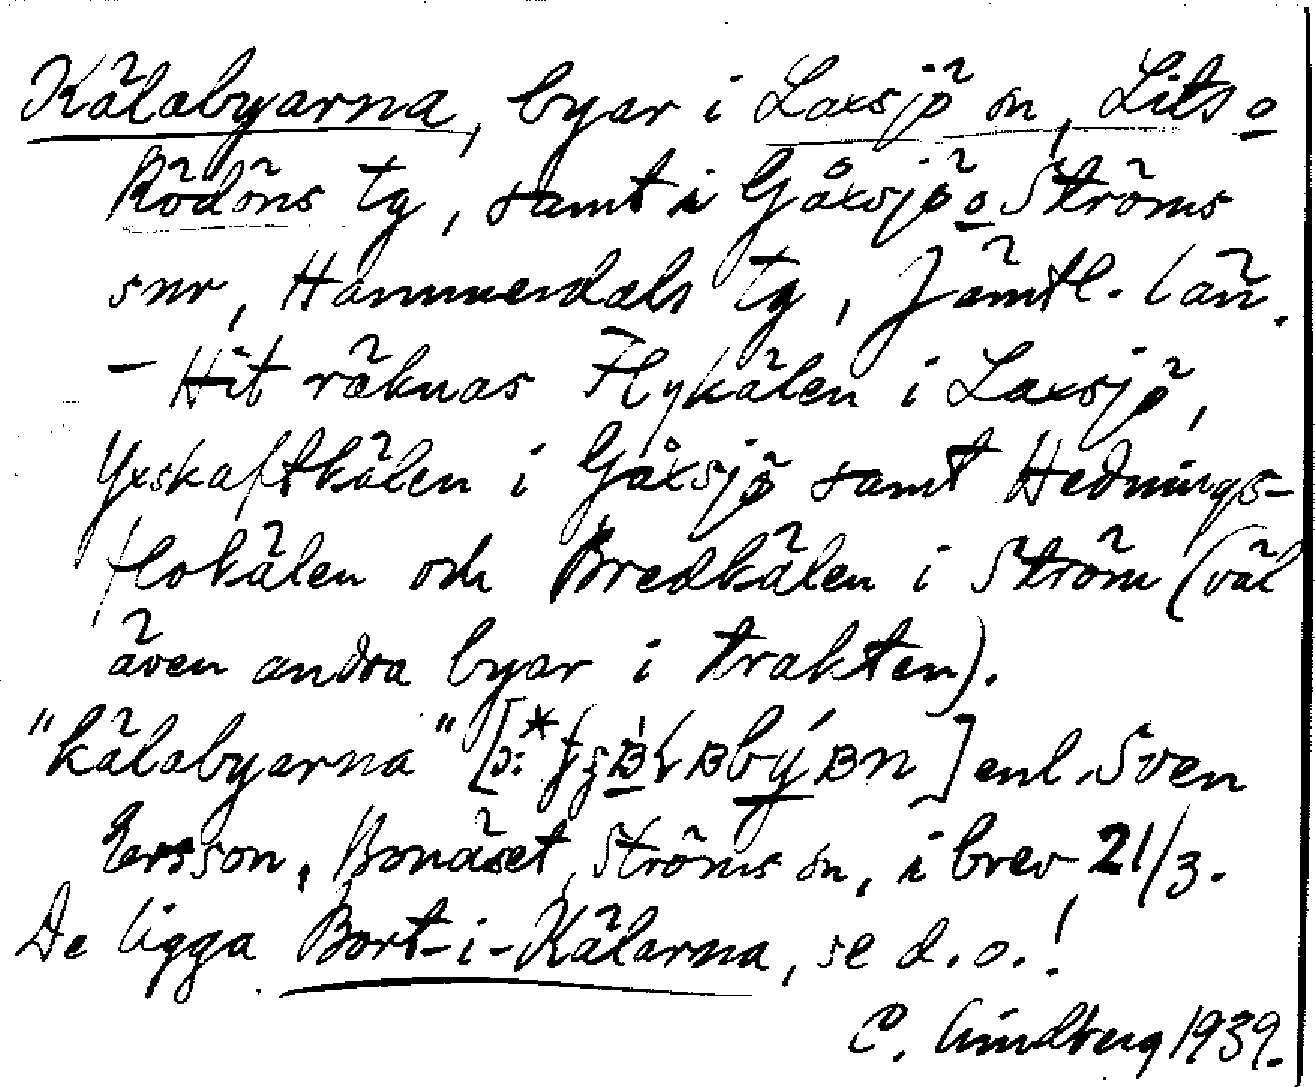 Kälabyarna, byar i Laxsjö sn, Lits o
Rödöns tg, samt i Gåxsjö o Ströms
snr, Hammerdals tg, Jämtl. län.
– Hit räknas Flykälen i Laxsjö,
Yxskaftkälen i Gåxsjö samt Hednings-
flokälen och Bredkälen i Ström (väl
även andra byar i trakten).
"kälabyarna" enl. Sven
Ersson, Bonäset, Ströms sn, i brev 21/3.
De ligga Bort-i-Kälarna, se d.o.!
C. Lindberg 1939.